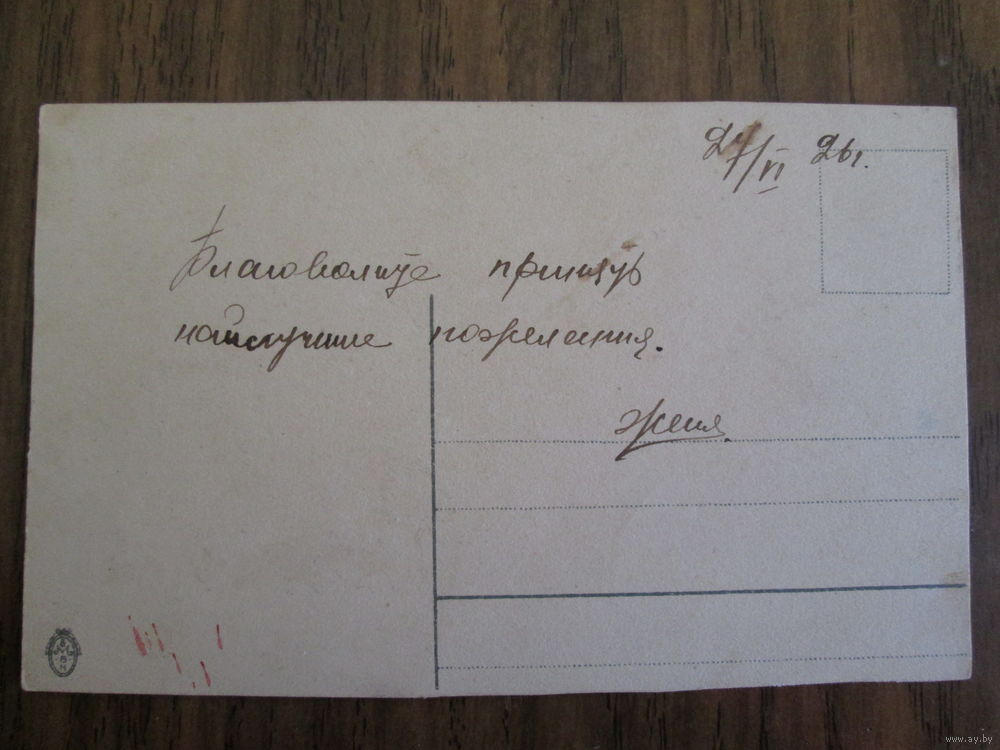 27/VI 26г.
Благоволите принять
наилучшие пожелания.
Женя.
www.ay.by